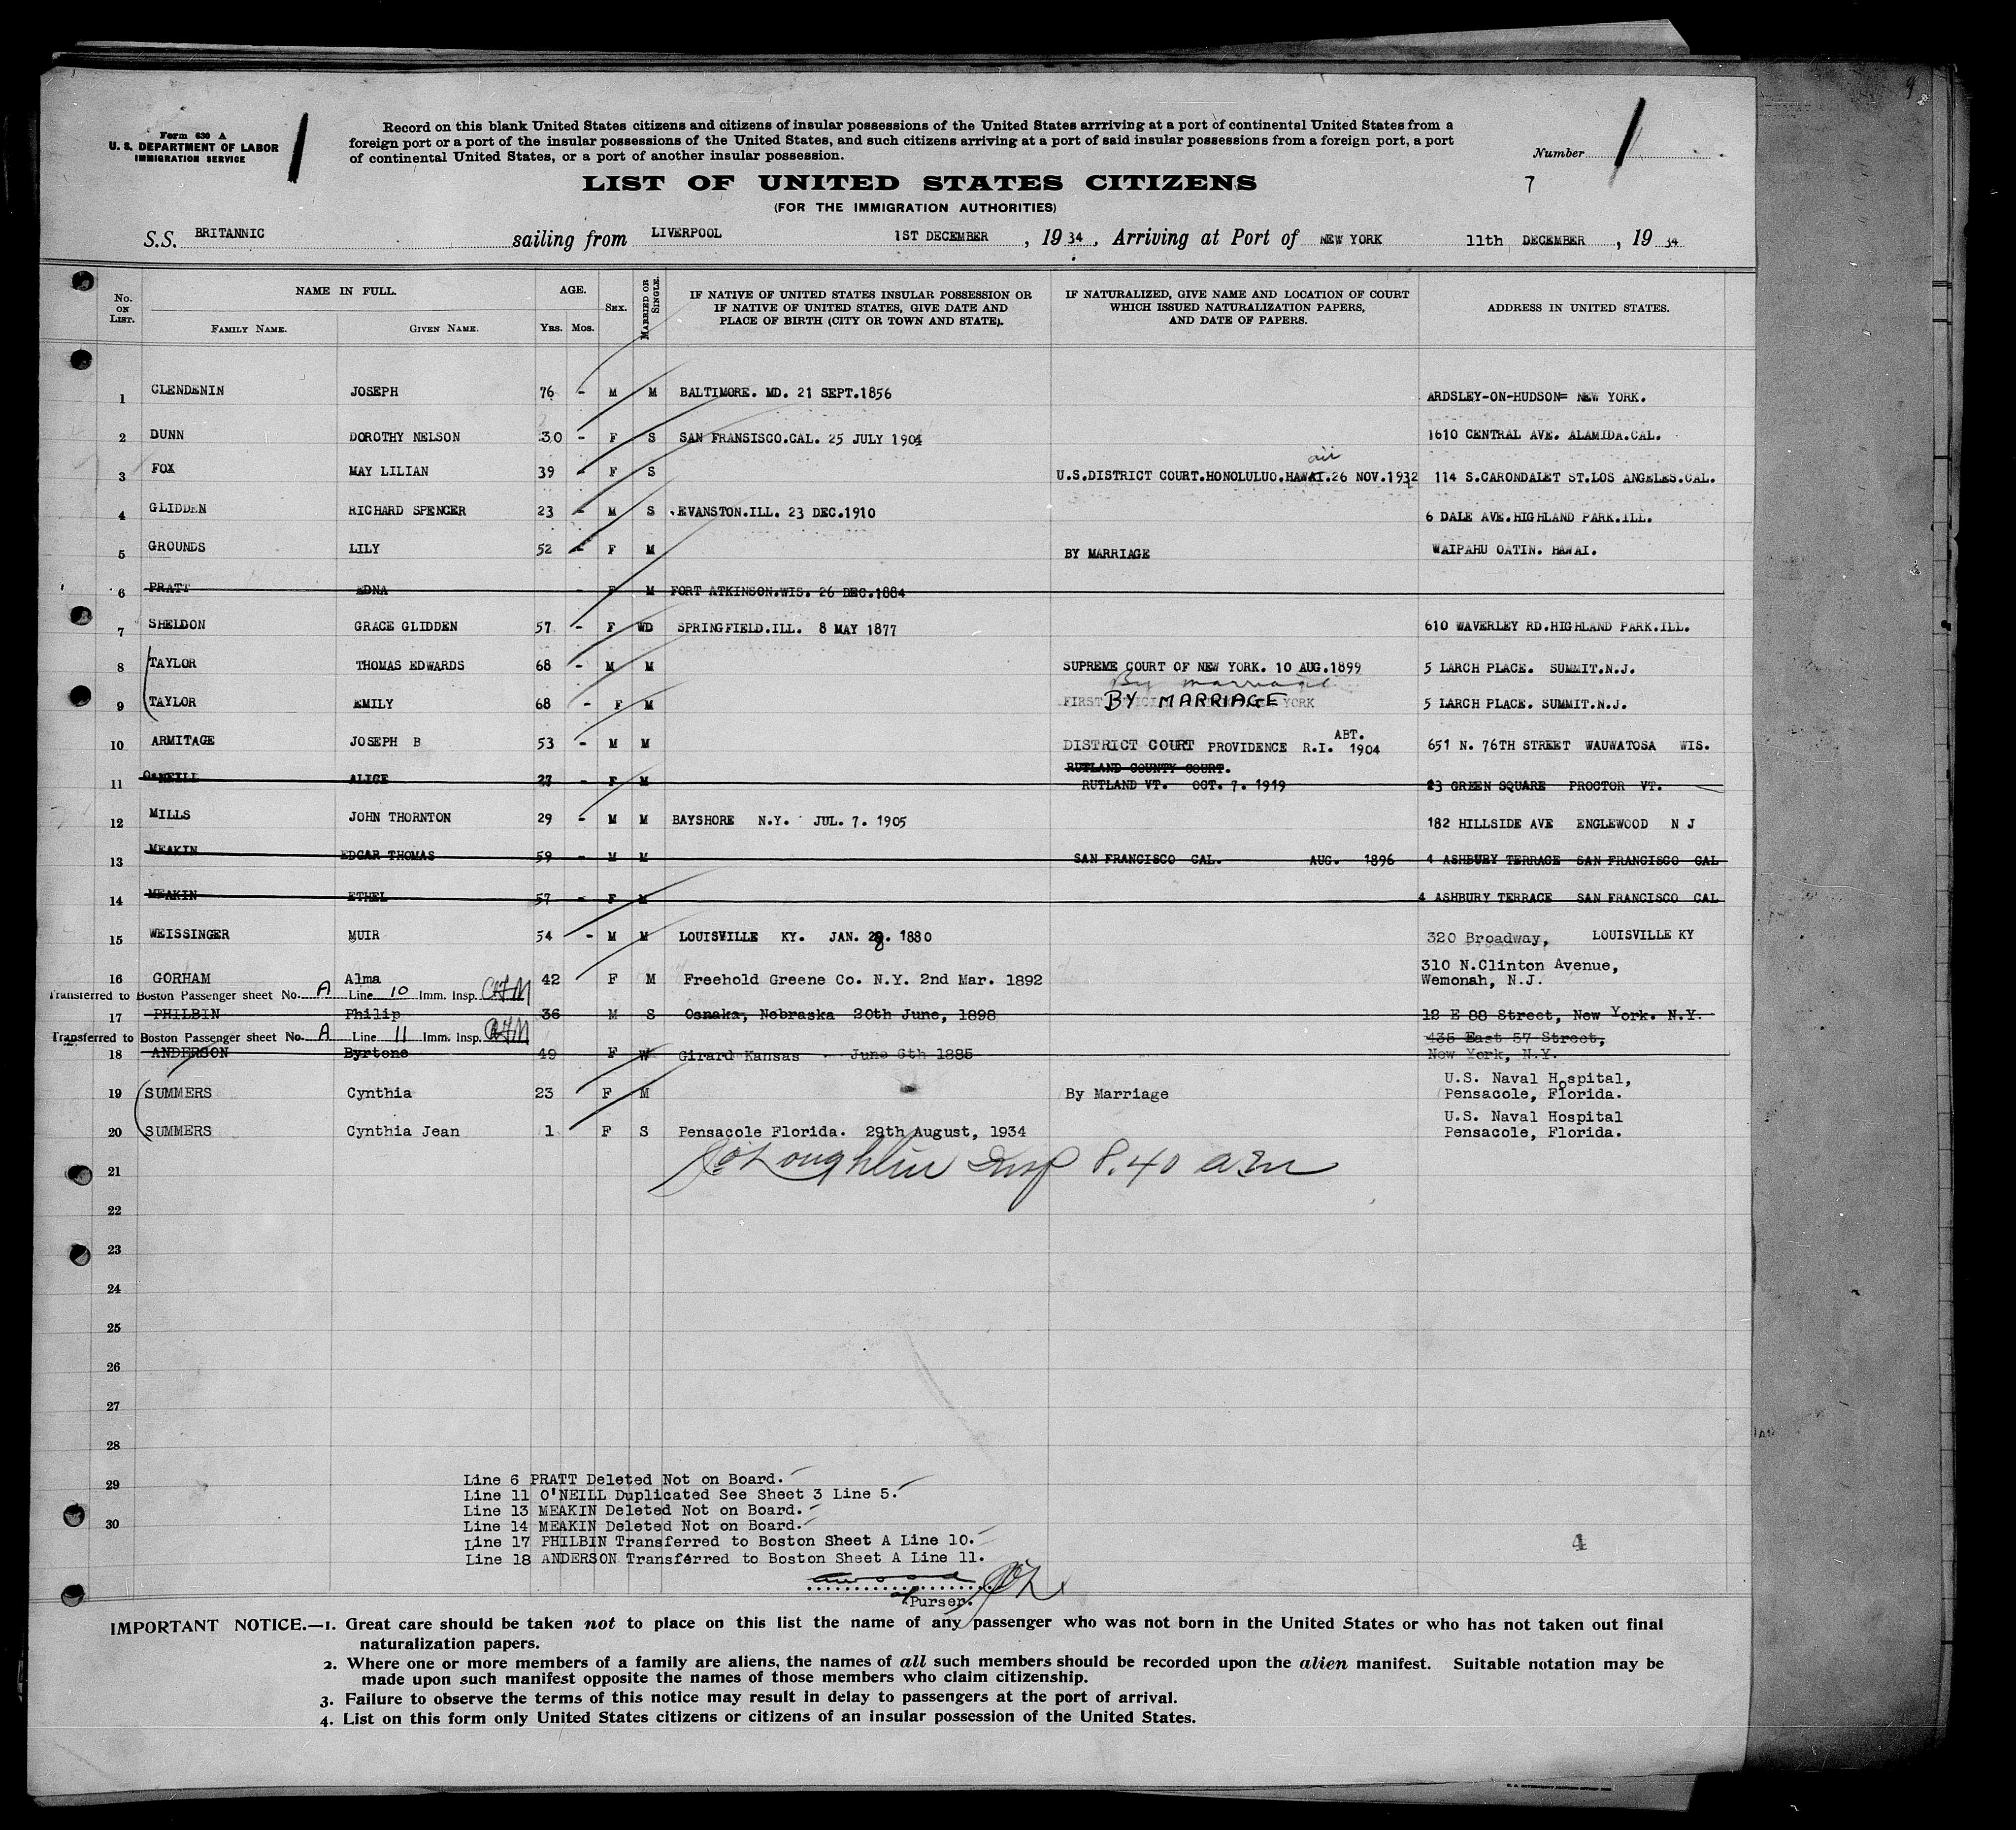 Form 630 A
U. S. DEPARTMENT OF LABOR
IMMIGRATION SERVICE
Record on this blank United States citizens and citizens of insular possessions of the United States arrriving at a port of continental United States from a
foreign port or a port of the insular possessions of the United States, and such citizens arriving at a port of said insular possessions from a foreign port, a port
of continental United States, or a port of another insular possession.
Number
7
LIST OF UNITED STATES CITIZENS
(FOR THE IMMIGRATION AUTHORITIES)
S.S. BRITANNIC sailing from LIVERPOOL 1ST DECEMBER, 1934, Arriving at Port of NEW YORK 11th DECEMBER, 19 34
No. ON LIST. NAME IN FULL. FAMILY NAME. GIVEN NAME. AGE. YRS. MOS. SEX. MARRIED OR SINGLE. IF NATIVE OF UNITED STATES INSULAR POSSESSION OR IF NATIVE OF UNITED STATES, GIVE DATE AND PLACE OF BIRTH (CITY OR TOWN AND STATE). IF NATURALIZED, GIVE NAME AND LOCATION OF COURT WHICH ISSUED NATURALIZATION PAPERS, AND DATE OF PAPERS. ADDRESS IN UNITED STATES.
1 CLENDENIN JOSEPH 76 - M M BALTIMORE. MD. 21 SEPT.1856 ARDSLEY-ON-HUDSON= NEW YORK.
2 DUNN DOROTHY NELSON 30 - F S SAN FRANSISCO.CAL. 25 JULY 1904 1610 CENTRAL AVE. ALAMIDA.CAL.
3 FOX MAY LILIAN 39 - F S U.S.DISTRICT COURT.HONOLULUO.HAWAI.26 NOV.1932 114 S.CARONDALET ST.LOS ANGELES.CAL.
aii
4 GLIDDEN RICHARD SPENCER 23 - M S .EVANSTON.ILL. 23 DEC.1910 6 DALE AVE.HIGHLAND PARK.ILL.
5 GROUNDS LILY 52 - F M BY MARRIAGE WAIPAHU OATIN. HAWAI.
6 PRATT EDNA - F M FORT ATKINSON.WIS. 26 DEC.1884
7 SHELDON GRACE GLIDDEN 57 - F WD SPRINGFIELD.ILL. 8 MAY 1877 610 WAVERLEY RD.HIGHLAND PARK.ILL.
8 TAYLOR THOMAS EDWARDS 68 - M M SUPREME COURT OF NEW YORK. 10 AUG.1899 5 LARCH PLACE. SUMMIT.N.J.
By marriage
9 TAYLOR EMILY 68 - F M BY MARRIAGE 5 LARCH PLACE. SUMMIT.N.J.
10 ARMITAGE JOSEPH B 53 - M M DISTRICT COURT PROVIDENCE R.I. ABT. 1904 651 N. 76TH STREET WAUWATOSA WIS.
RUTLAND COUNTY COURT.
11 O'NEILL ALICE 27 - F M RUTLAND VT. OCT. 7. 1919 23 GREEN SQUARE PROCTOR VT.
12 MILLS JOHN THORNTON 29 - M M BAYSHORE N.Y. JUL. 7. 1905 182 HILLSIDE AVE ENGLEWOOD N J
13 MEAKIN EDGAR THOMAS 59 - M M SAN FRANCISCO CAL. AUG. 1896 4 ASHBURY TERRACE SAN FRANCISCO CAL
14 MEAKIN ETHEL 57 - F M 4 ASHBURY TERRACE SAN FRANCISCO CAL
15 WEISSINGER MUIR 54 - M M LOUISVILLE KY. JAN. 28. 1880 320 Broadway, LOUISVILLE KY
310 N.Clinton Avenue,
16 GORHAM Alma 42 F M Freehold Greene Co. N.Y. 2nd Mar. 1892 Wemonah, N.J.
Transferred to Boston Passenger sheet No. A Line 10 Imm. Insp.
17 PHILBIN Philip 36 M S Osnaka, Nebraska 20th June, 1898 12 E 88 Street, New York. N.Y.
Transferred to Boston Passenger sheet No. A Line 11 Imm. Insp.
435 East 57 Street,
18 ANDERSON Byrtone 49 F W Girard Kansas June 6th 1885 New York, N.Y.
U.S. Naval Hospital,
19 SUMMERS Cynthia 23 F M By Marriage Pensacole, Florida.
U.S. Naval Hospital
20 SUMMERS Cynthia Jean 1 F S Pensacole Florida. 29th August, 1934 Pensacole, Florida.
21 O'Loughlin Insp 8.40 am
22
23
24
25
26
27
28
Line 6 PRATT Deleted Not on Board.
29
Line 11 O'NEILL Duplicated See Sheet 3 Line 5.
Line 13 MEAKIN Deleted Not on Board.
30
Line 14 MEAKIN Deleted Not on Board.
Line 17 PHILBIN Transferred to Boston Sheet A Line 10.
4
Line 18 ANDERSON Transferred to Boston Sheet A Line 11.
Purser.
IMPORTANT NOTICE.—1. Great care should be taken not to place on this list the name of any passenger who was not born in the United States or who has not taken out final
naturalization papers.
2. Where one or more members of a family are aliens, the names of all such members should be recorded upon the alien manifest. Suitable notation may be
made upon such manifest opposite the names of those members who claim citizenship.
3. Failure to observe the terms of this notice may result in delay to passengers at the port of arrival.
4. List on this form only United States citizens or citizens of an insular possession of the United States.